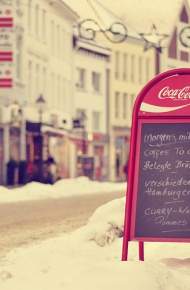 Coca-Cola
Morgens mit
Coffee To
Belegte Brö
verschieden
Hamburger
Curry-Wu
Pommes